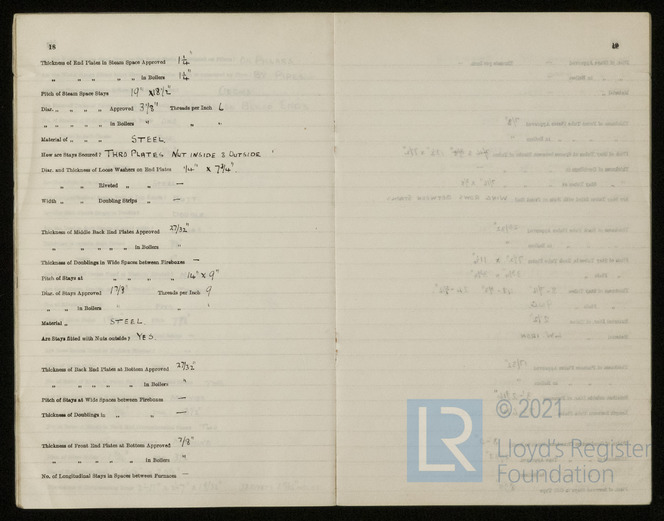 18
Thickness of End Plates in Steam Space Approved 1 1/4"
" " " " " in Boilers 1 1/4"
Pitch of Steam Space Stays 19" x 18 1/2"
Diar. " " " " Approved 3 7/8" Threads per Inch 6
" " " " in Boilers " " "
Material of " " " STEEL
How are Stays Secured? THRO PLATES NUT INSIDE & OUTSIDE
Diar. and Thickness of Loose Washers on End Plates 1/4" x 7 3/4"
" " Riveted " " —
Width " " Doubling Strips " —
Thickness of Middle Back End Plates Approved 27/32"
" " " " " in Boilers "
Thickness of Doublings in Wide Spaces between Fireboxes —
Pitch of Stays at " " " " 14" x 9"
Diar. of Stays Approved 1 7/8" Threads per Inch 9
" " in Boilers " "
Material " STEEL.
Are Stays fitted with Nuts outside? YES.
Thickness of Back End Plates at Bottom Approved 27/32"
" " " " " in Boilers "
Pitch of Stays at Wide Spaces between Fireboxes —
Thickness of Doublings in " " —
Thickness of Front End Plates at Bottom Approved 7/8"
" " " " " in Boilers "
No. of Longitudinal Stays in Spaces between Furnaces —
19
LR
© 2021
Lloyd's Register
Foundation